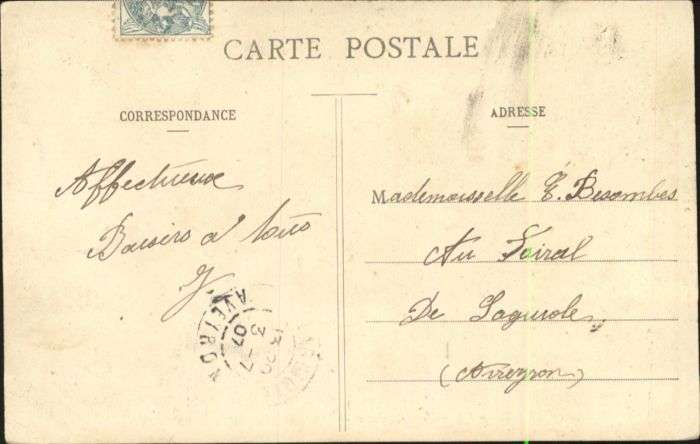 CARTE POSTALE
CORRESPONDANCE
Affectueux
Baisers à tous
Y.
ADRESSE
Mademoiselle E. Besombes
Au Foiral
De Laguiole
(Aveyron)
AVEYRON
13 - 7
07